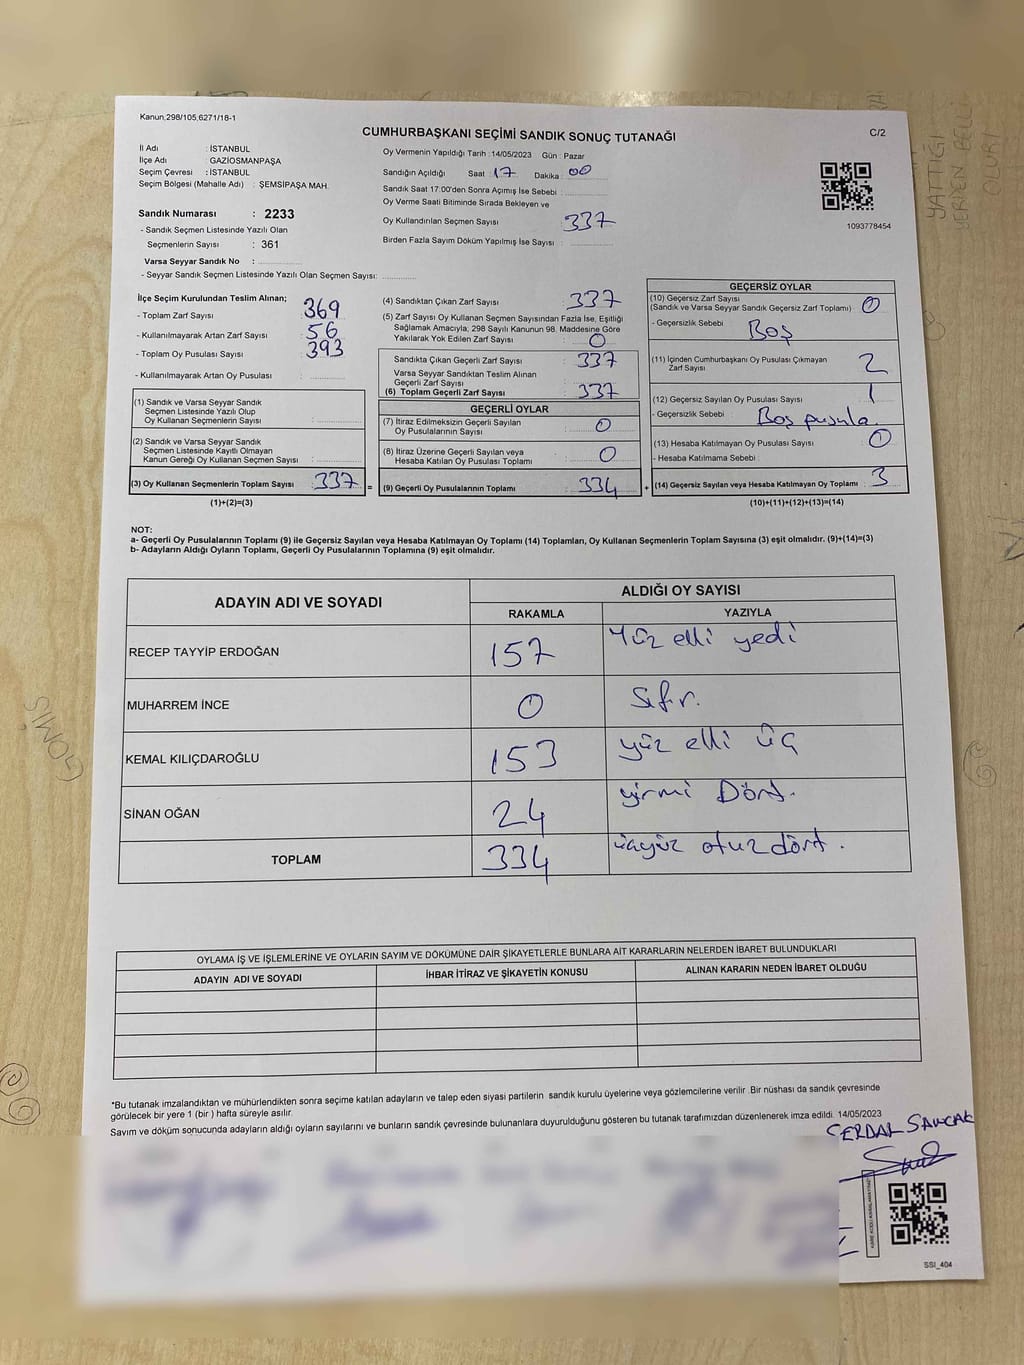 Kanun,298/105,6271/18-1
CUMHURBAŞKANI SEÇİMİ SANDIK SONUÇ TUTANAĞI
C/2
İl Adı : İSTANBUL
İlçe Adı : GAZİOSMANPAŞA
Seçim Çevresi : İSTANBUL
Seçim Bölgesi (Mahalle Adı) : ŞEMSİPAŞA MAH.
Sandık Numarası : 2233
- Sandık Seçmen Listesinde Yazılı Olan
Seçmenlerin Sayısı : 361
Varsa Seyyar Sandık No :
- Seyyar Sandık Seçmen Listesinde Yazılı Olan Seçmen Sayısı:
Oy Vermenin Yapıldığı Tarih :14/05/2023 Gün : Pazar
Sandığın Açıldığı Saat : 17 Dakika : 00
Sandık Saat 17:00'den Sonra Açımış İse Sebebi :
Oy Verme Saati Bitiminde Sırada Bekleyen ve
Oy Kullandırılan Seçmen Sayısı : 337
Birden Fazla Sayım Döküm Yapılmış İse Sayısı :
1093778454
İlçe Seçim Kurulundan Teslim Alınan;
- Toplam Zarf Sayısı : 369
- Kullanılmayarak Artan Zarf Sayısı : 56
- Toplam Oy Pusulası Sayısı : 393
- Kullanılmayarak Artan Oy Pusulası :
(1) Sandık ve Varsa Seyyar Sandık
Seçmen Listesinde Yazılı Olup
Oy Kullanan Seçmenlerin Sayısı :
(2) Sandık ve Varsa Seyyar Sandık
Seçmen Listesinde Kayıtlı Olmayan
Kanun Gereği Oy Kullanan Seçmen Sayısı :
(3) Oy Kullanan Seçmenlerin Toplam Sayısı : 337 =
(1)+(2)=(3)
(4) Sandıktan Çıkan Zarf Sayısı : 337
(5) Zarf Sayısı Oy Kullanan Seçmen Sayısından Fazla İse, Eşitliği
Sağlamak Amacıyla, 298 Sayılı Kanunun 98. Maddesine Göre
Yakılarak Yok Edilen Zarf Sayısı : 0
Sandıkta Çıkan Geçerli Zarf Sayısı : 337
Varsa Seyyar Sandıktan Teslim Alınan
Geçerli Zarf Sayısı :
(6) Toplam Geçerli Zarf Sayısı : 337
GEÇERLİ OYLAR
(7) İtiraz Edilmeksizin Geçerli Sayılan
Oy Pusulalarının Sayısı : 0
(8) İtiraz Üzerine Geçerli Sayılan veya
Hesaba Katılan Oy Pusulası Toplamı : 0
(9) Geçerli Oy Pusulalarının Toplamı : 334 +
GEÇERSİZ OYLAR
(10) Geçersiz Zarf Sayısı
(Sandık ve Varsa Seyyar Sandık Geçersiz Zarf Toplamı) : 0
- Geçersizlik Sebebi : Boş
(11) İçinden Cumhurbaşkanı Oy Pusulası Çıkmayan
Zarf Sayısı : 2
(12) Geçersiz Sayılan Oy Pusulası Sayısı : 1
- Geçersizlik Sebebi : Boş pusula.
(13) Hesaba Katılmayan Oy Pusulası Sayısı : 0
- Hesaba Katılmama Sebebi :
(14) Geçersiz Sayılan veya Hesaba Katılmayan Oy Toplamı : 3
(10)+(11)+(12)+(13)=(14)
NOT:
a- Geçerli Oy Pusulalarının Toplamı (9) ile Geçersiz Sayılan veya Hesaba Katılmayan Oy Toplamı (14) Toplamları, Oy Kullanan Seçmenlerin Toplam Sayısına (3) eşit olmalıdır. (9)+(14)=(3)
b- Adayların Aldığı Oyların Toplamı, Geçerli Oy Pusulalarının Toplamına (9) eşit olmalıdır.
ADAYIN ADI VE SOYADI
ALDIĞI OY SAYISI
RAKAMLA YAZIYLA
RECEP TAYYİP ERDOĞAN 157 Yüz elli yedi
MUHARREM İNCE 0 Sıfır.
KEMAL KILIÇDAROĞLU 153 yüz elli üç
SİNAN OĞAN 24 yirmi Dört.
TOPLAM 334 üçyüz otuz dört.
OYLAMA İŞ VE İŞLEMLERİNE VE OYLARIN SAYIM VE DÖKÜMÜNE DAİR ŞİKAYETLERLE BUNLARA AİT KARARLARIN NELERDEN İBARET BULUNDUKLARI
ADAYIN ADI VE SOYADI İHBAR İTİRAZ VE ŞİKAYETİN KONUSU ALINAN KARARIN NEDEN İBARET OLDUĞU
*Bu tutanak imzalandıktan ve mühürlendikten sonra seçime katılan adayların ve talep eden siyasi partilerin sandık kurulu üyelerine veya gözlemcilerine verilir. Bir nüshası da sandık çevresinde
görülecek bir yere 1 (bir ) hafta süreyle asılır.
Sayım ve döküm sonucunda adayların aldığı oyların sayılarını ve bunların sandık çevresinde bulunanlara duyurulduğunu gösteren bu tutanak tarafımızdan düzenlenerek imza edildi. 14/05/2023
SERDAL SANCAK
SSI_404
YATTIĞI
YERDEN BELLİ
OLUR!